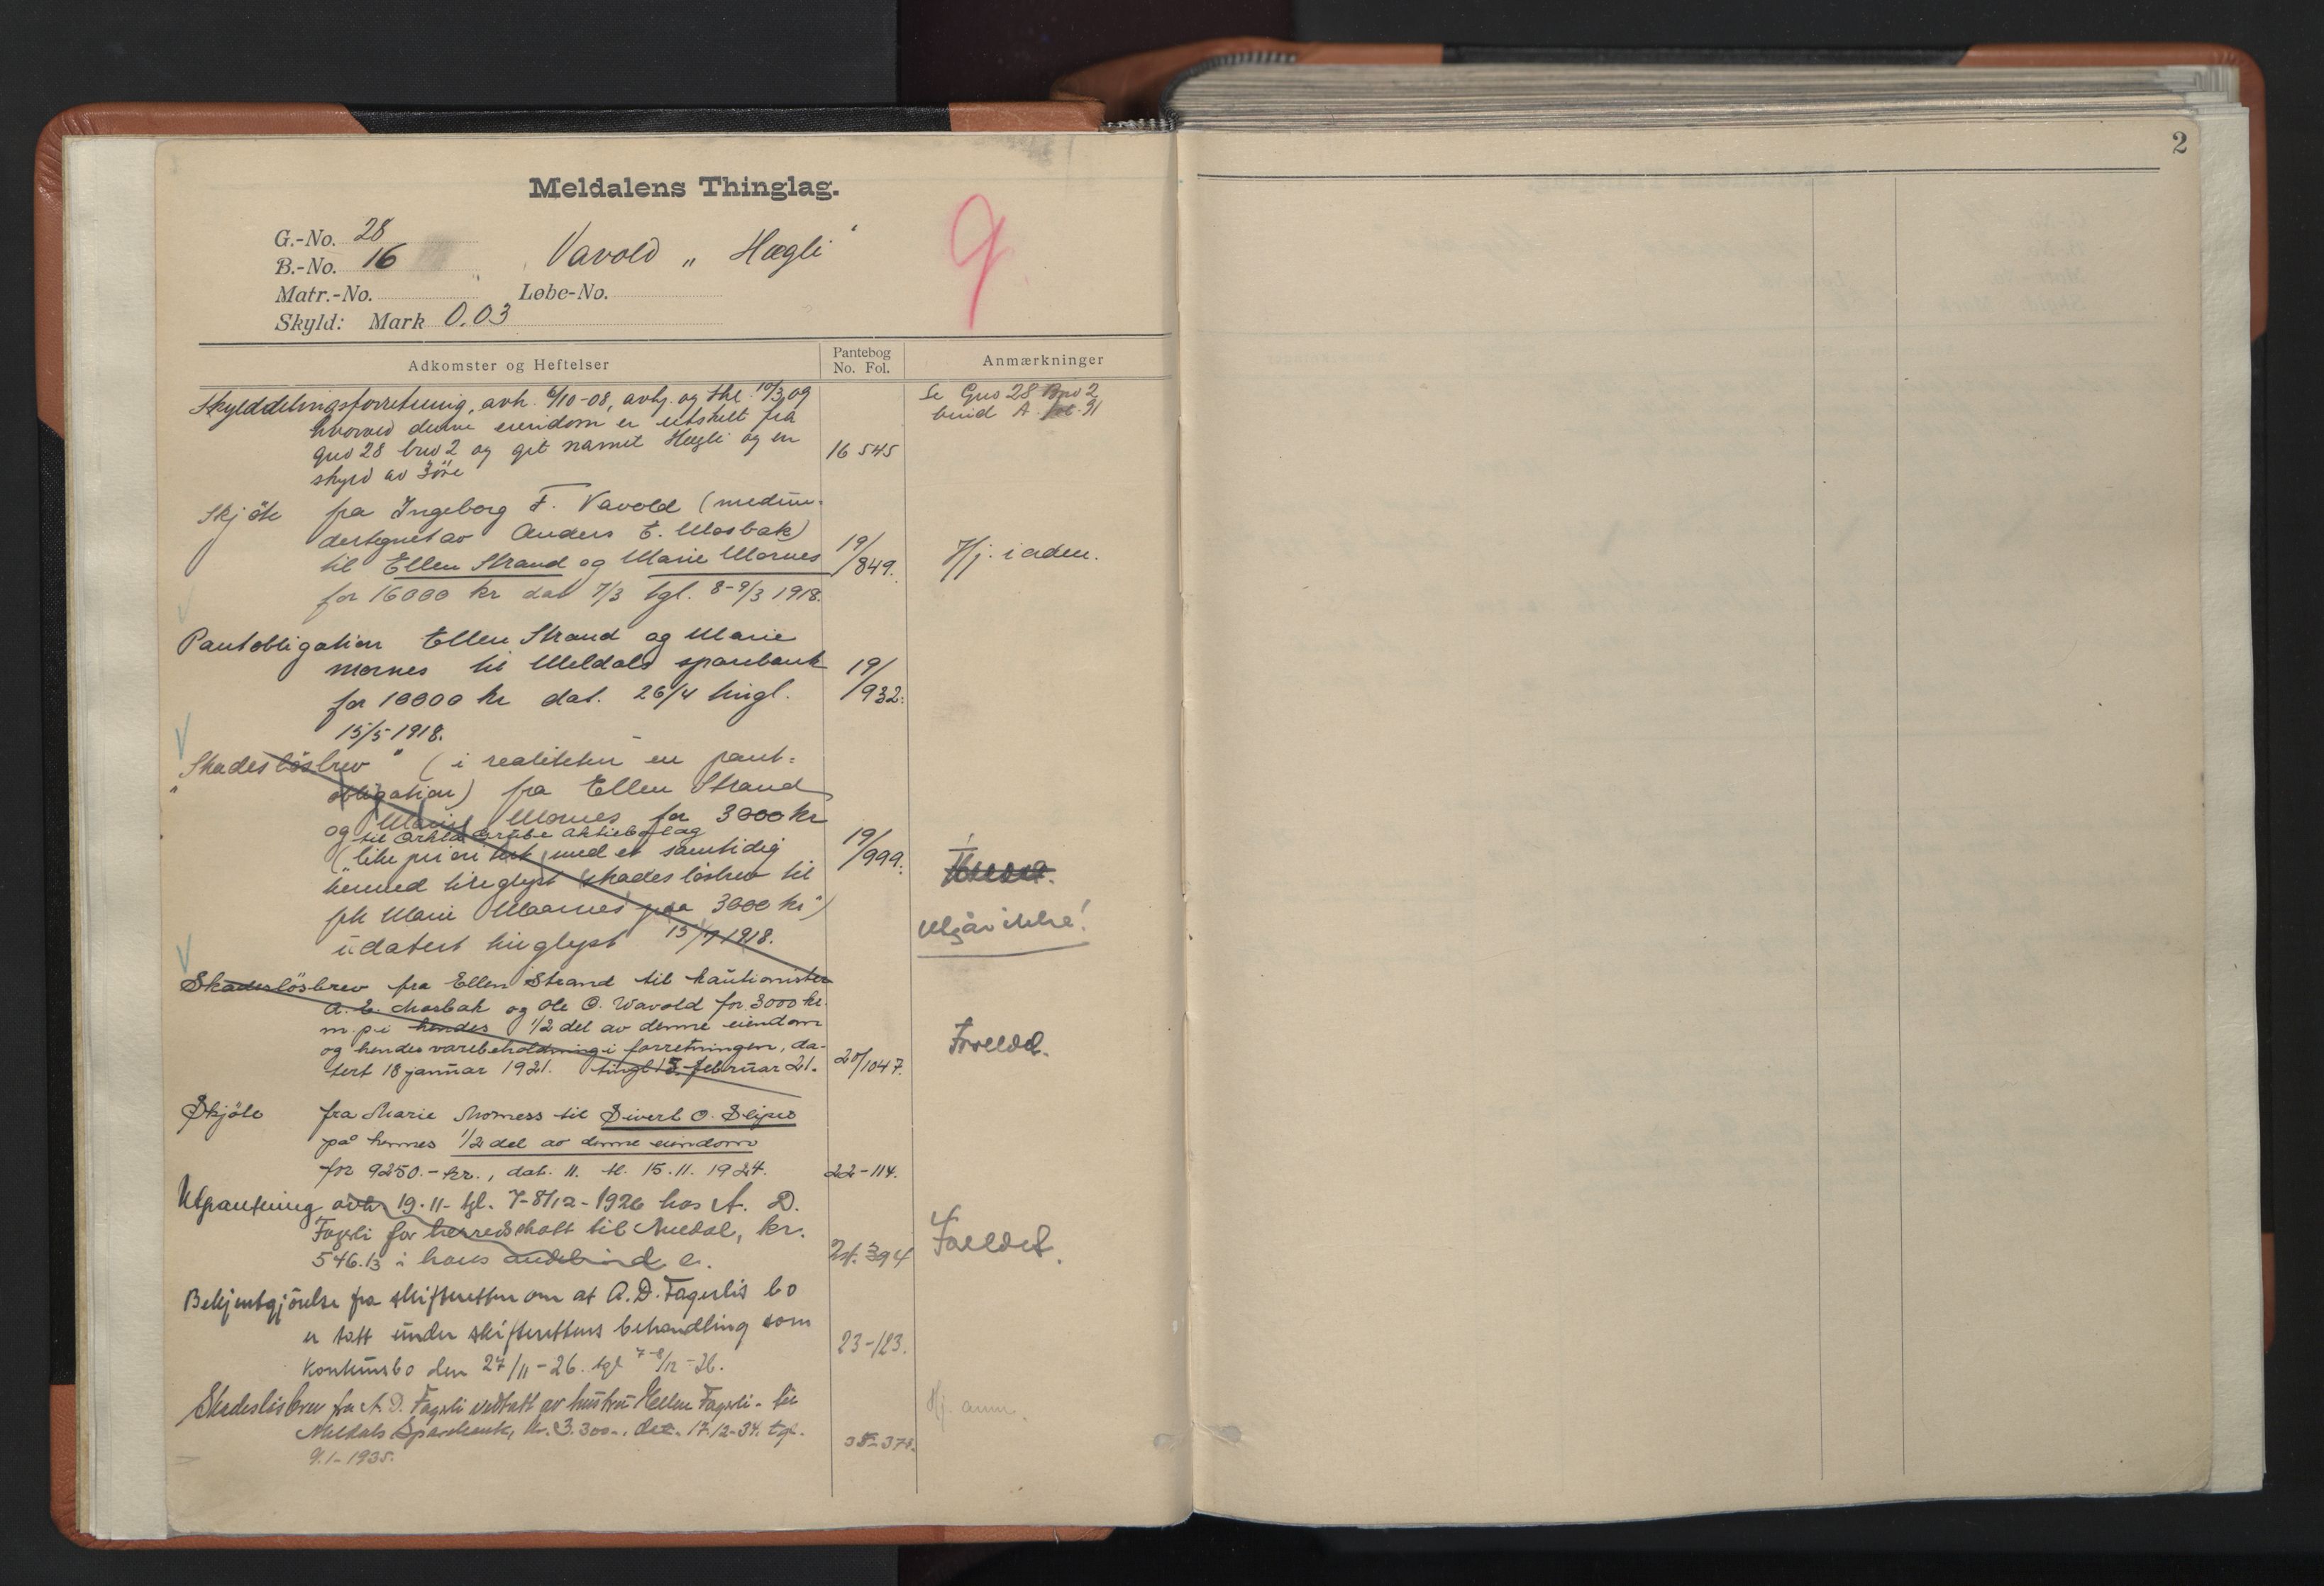 2
Meldalens Thinglag.
G.-No. 28
B.-No. 16
Vavold „ Hægli"
9
Matr.-No. Løbe-No.
Skyld: Mark 0.03
Adkomster og Heftelser
Pantebog
No. Fol.
Anmærkninger
Skylddelingsforretning, avh. 6/10-08, avhj. og thl. 10/3 09
hvorved denne eiendom er utskilt fra
gno 28 bno 2 og git navnet Hægli og en
skyld av 3 öre
16 545
Se Gno 28 Bno 2
bind A fol. 91
Skjöte fra Ingeborg F. Vavold (medun-
dertegnet av Anders E. Mosbak)
til Ellen Strand og Marie Mornes
for 16000 kr dat 7/3 tgl. 8-9/3 1918.
19/849.
Hj. i aden.
Pantobligation Ellen Strand og Marie
Mornes til Meldals sparebank
for 10000 kr dat. 26/4 tingl.
15/5 1918.
19/932.
"Skadeslösbrev" (i realiteten en pant-
obligation) fra Ellen Strand
og Marie Mornes for 3000 kr
til Orkla Grube Aktiebolag
(like prioritert med et samtidig
hermed tinglyst skadeslösbrev til
frk Marie Mornes paa 3000 kr)
udatert tinglyst 15/7 1918.
19/999.
utgår ikke!
Skadeslösbrev fra Ellen Strand til kautionister
A. E. Mosbak og Ole O. Wavold for 3000 kr.
m. p. i hendes 1/2 del av denne eiendom
og hendes varebeholdning i forretningen, da-
tert 18 januar 1921. tingl 15. februar 21.
20/1047.
Foreldet.
Skjöte fra Marie Morness til Sivert O. Slipro
på hennes 1/2 del av denne eiendom
for 9250.- kr., dat. 11. tl. 15.11. 1924.
22-114.
Utpantning avh. 19.11- tgl. 7-8/12-1926 hos A. D.
Fagerli for herredskatt til Meldal, kr.
546.13 i hans andel
394
Foreldet.
Bekjentgjörelse fra skifteretten om at A. D. Fagerlis bo
er tatt under skifterettens behandling som
konkursbo den 27/11-26. tgl 7-8/12-26.
23-123.
Skadeslösbrev fra A. D. Fagerli vedtatt av hustru Hellen Fagerli - til
Meldals Sparebank, kr. 3.300-, dat. 17.12-34. tgl.
9.1-1935.
Hj. anm.